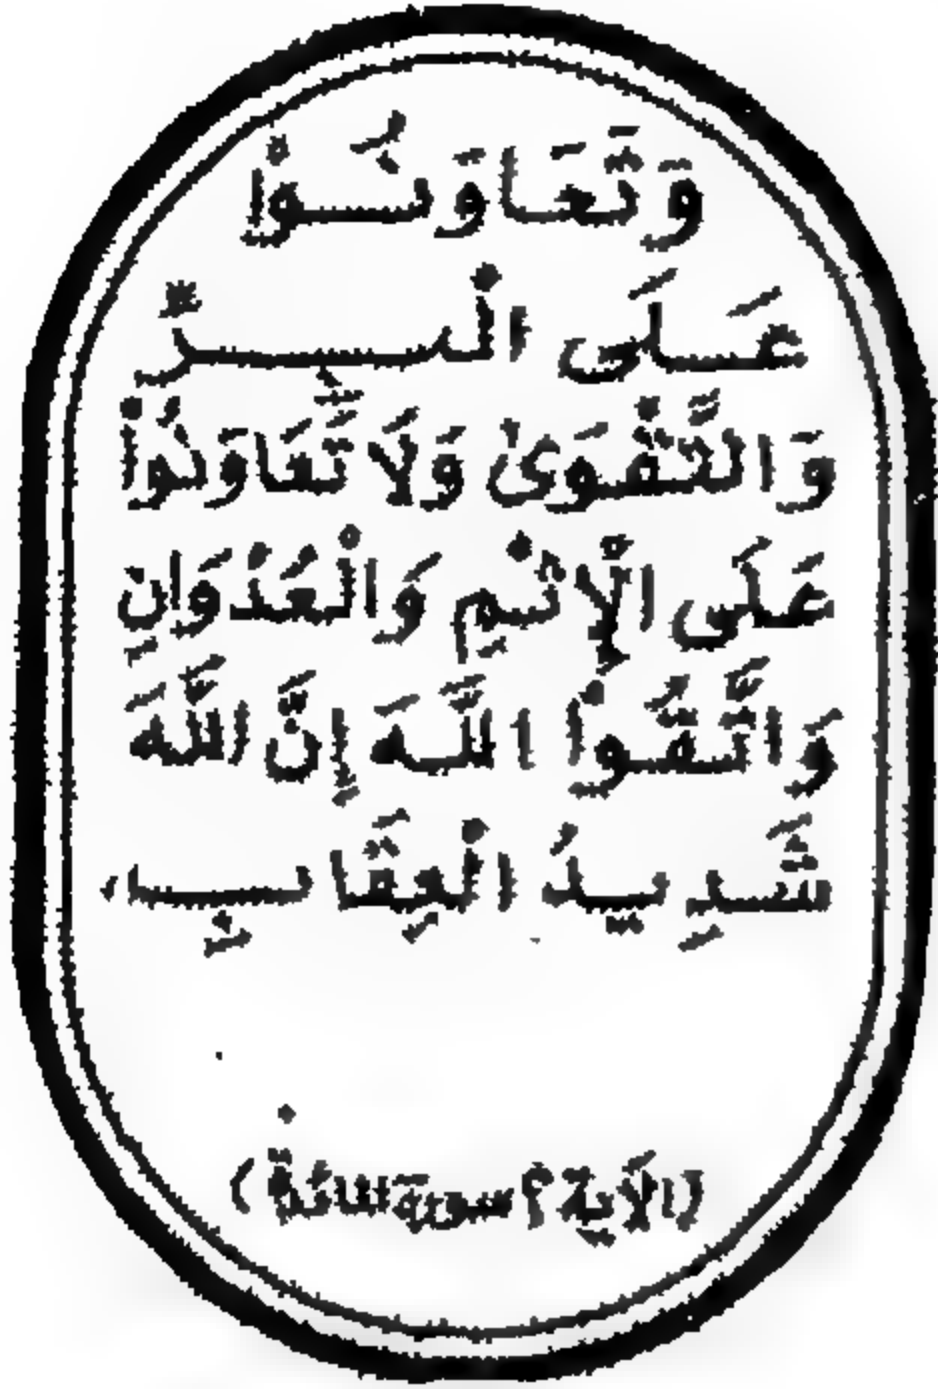 وَتَعَاوَنُوْا
عَلَى الْبِرِّ
وَالتَّقْوَىٰ وَلَا تَعَاوَنُوْا
عَلَى الْإِثْمِ وَالْعُدْوَانِ
وَاتَّقُوْا اللَّهَ إِنَّ اللَّهَ
شَدِيدُ الْعِقَابِ،
(الآية ٢ سورة المائدة)